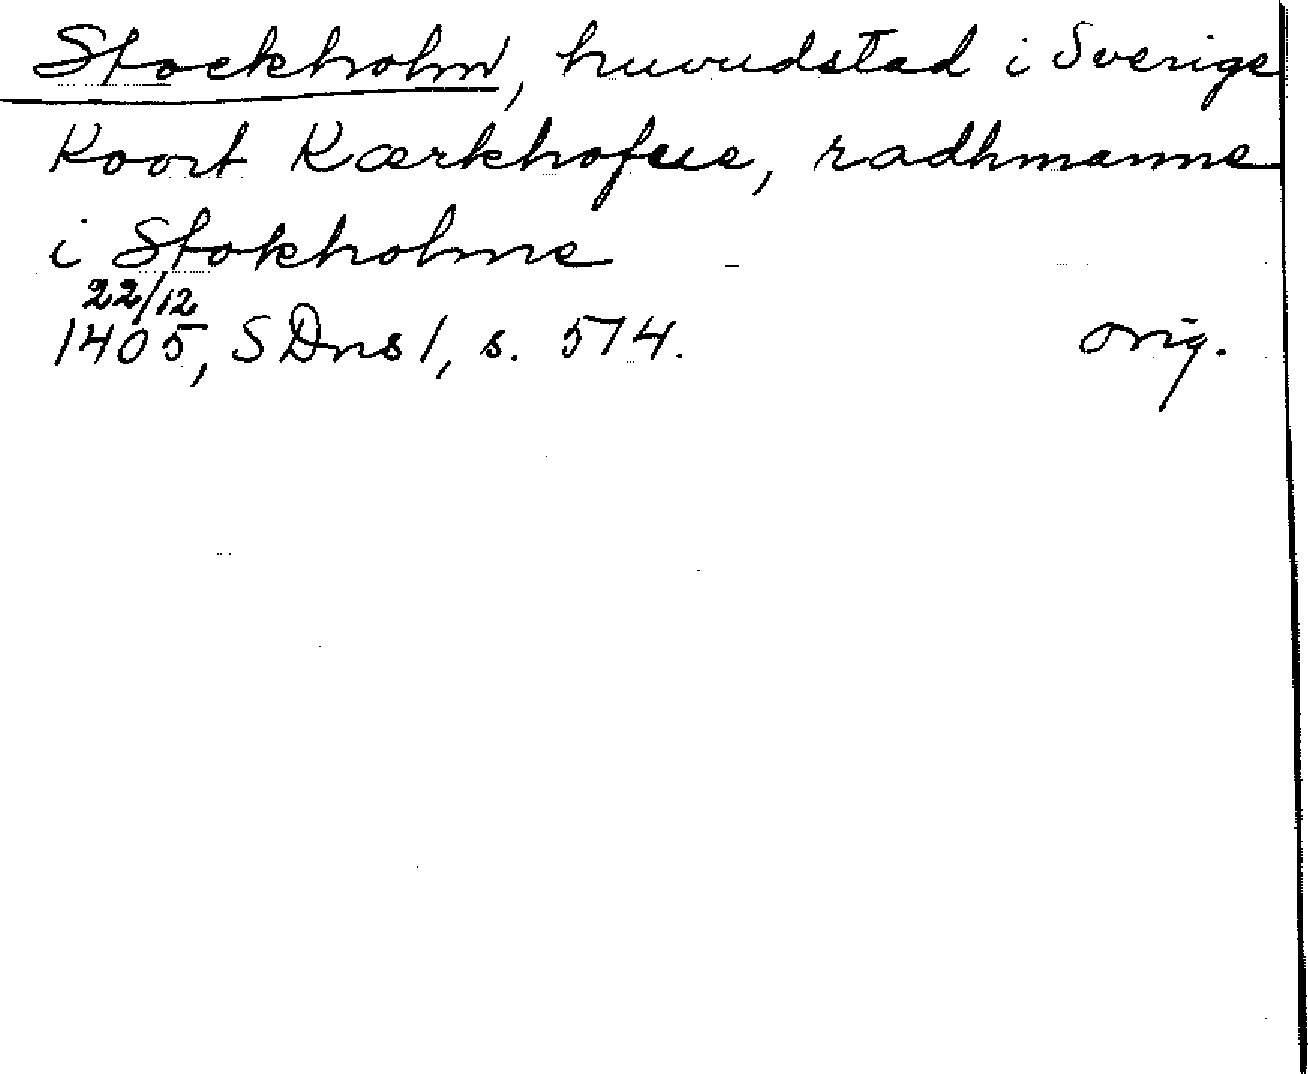 Stockholm, huvudstad i Sverige
Koort Kærkhofue, radhmanne
i Stokholme
22/12
1405, SDns 1, s. 574. orig.